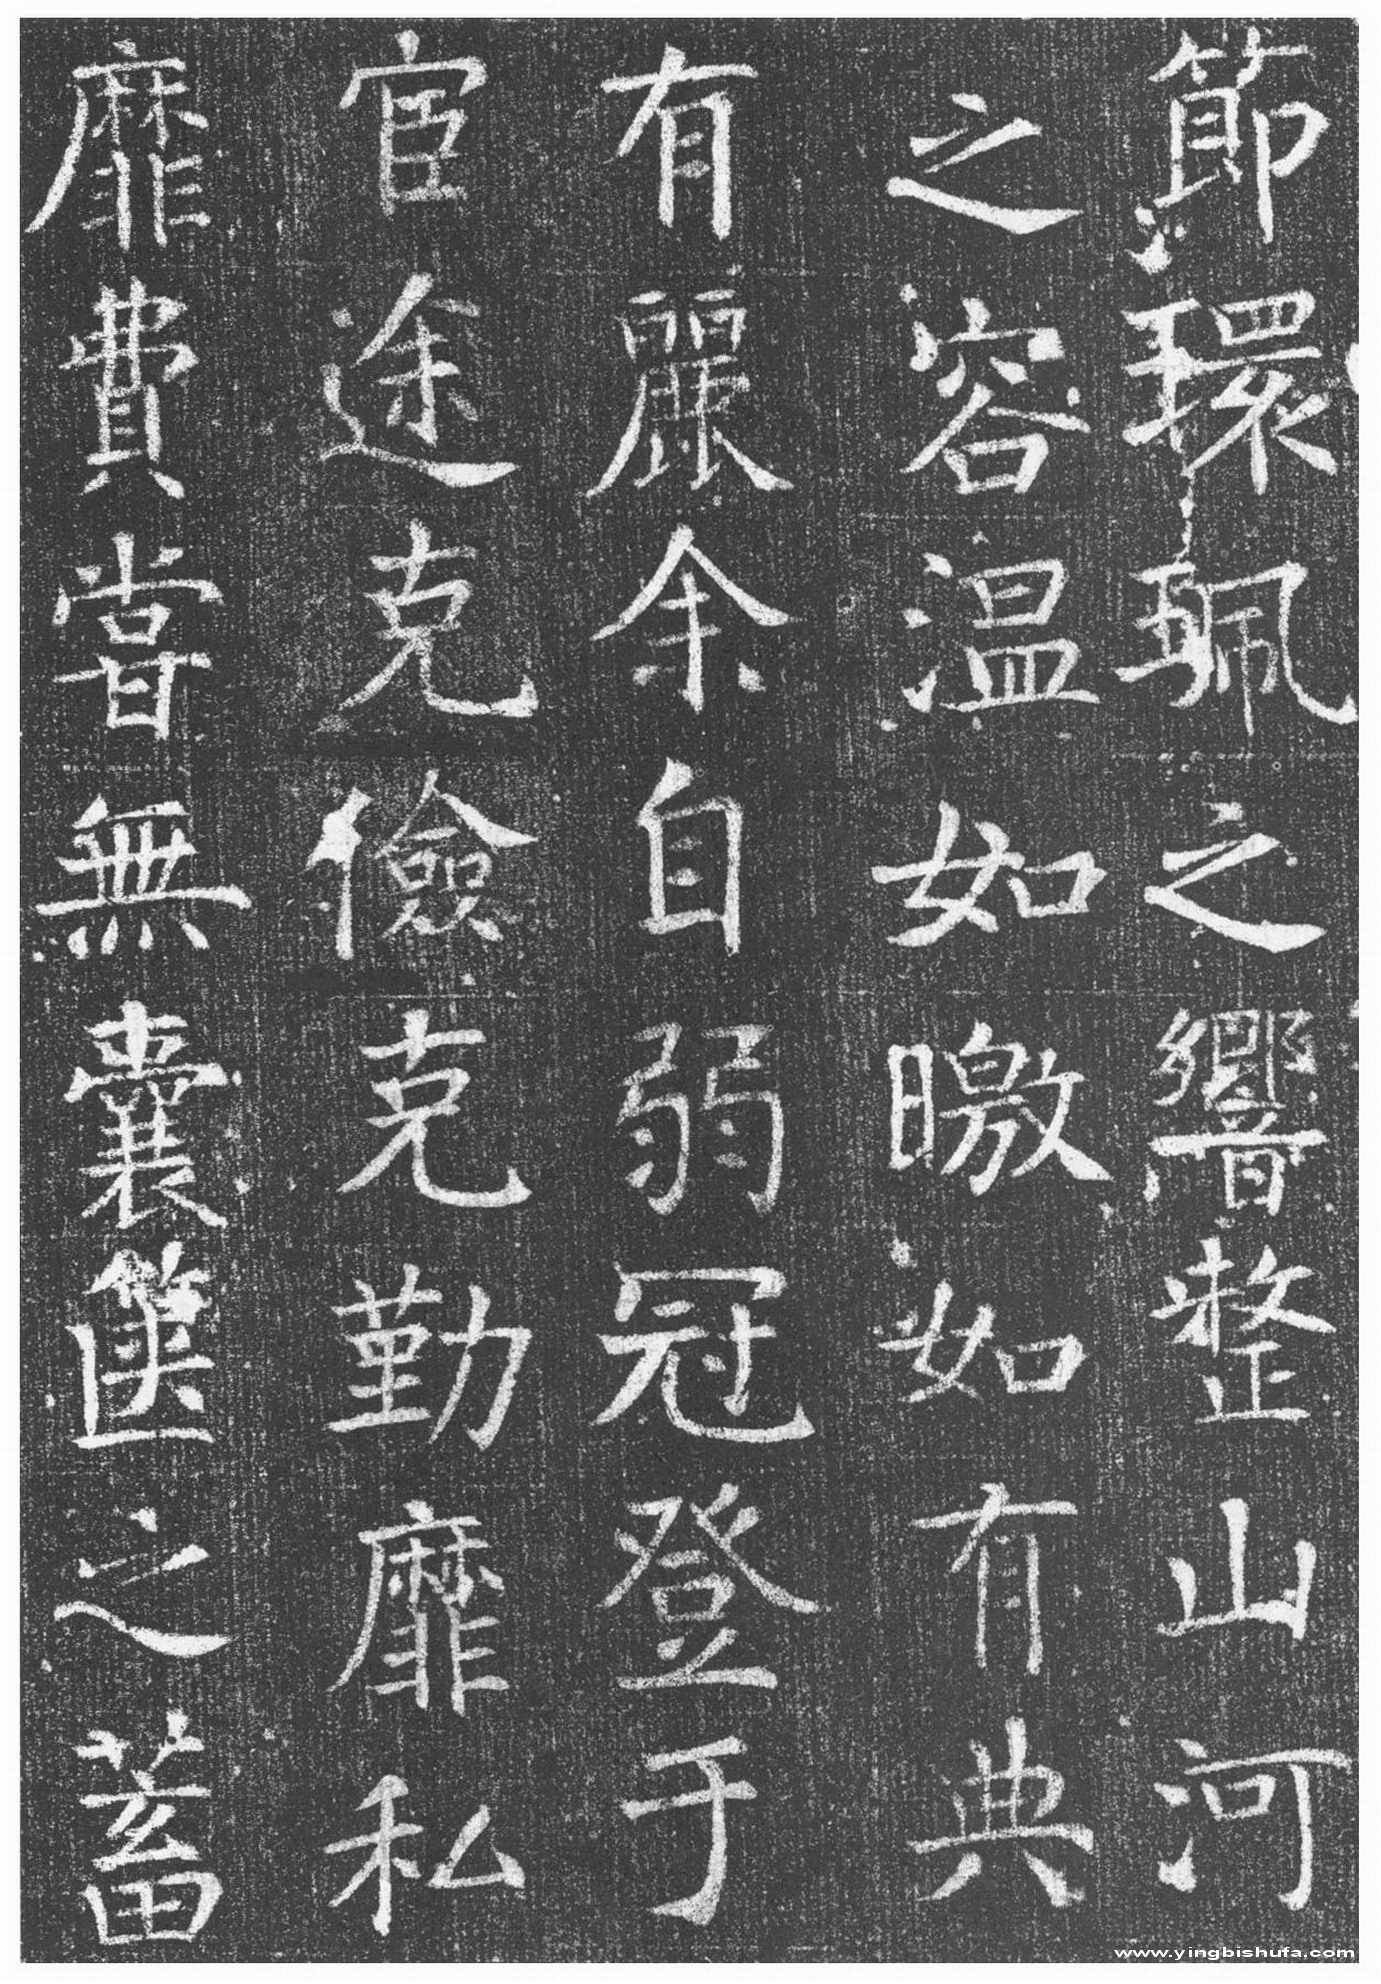 節環珮之響整山河
之容溫如曒如有典
有麗余自弱冠登于
宦途克儉克勤靡私
靡費嘗無囊篋之蓄
www.yingbishufa.com